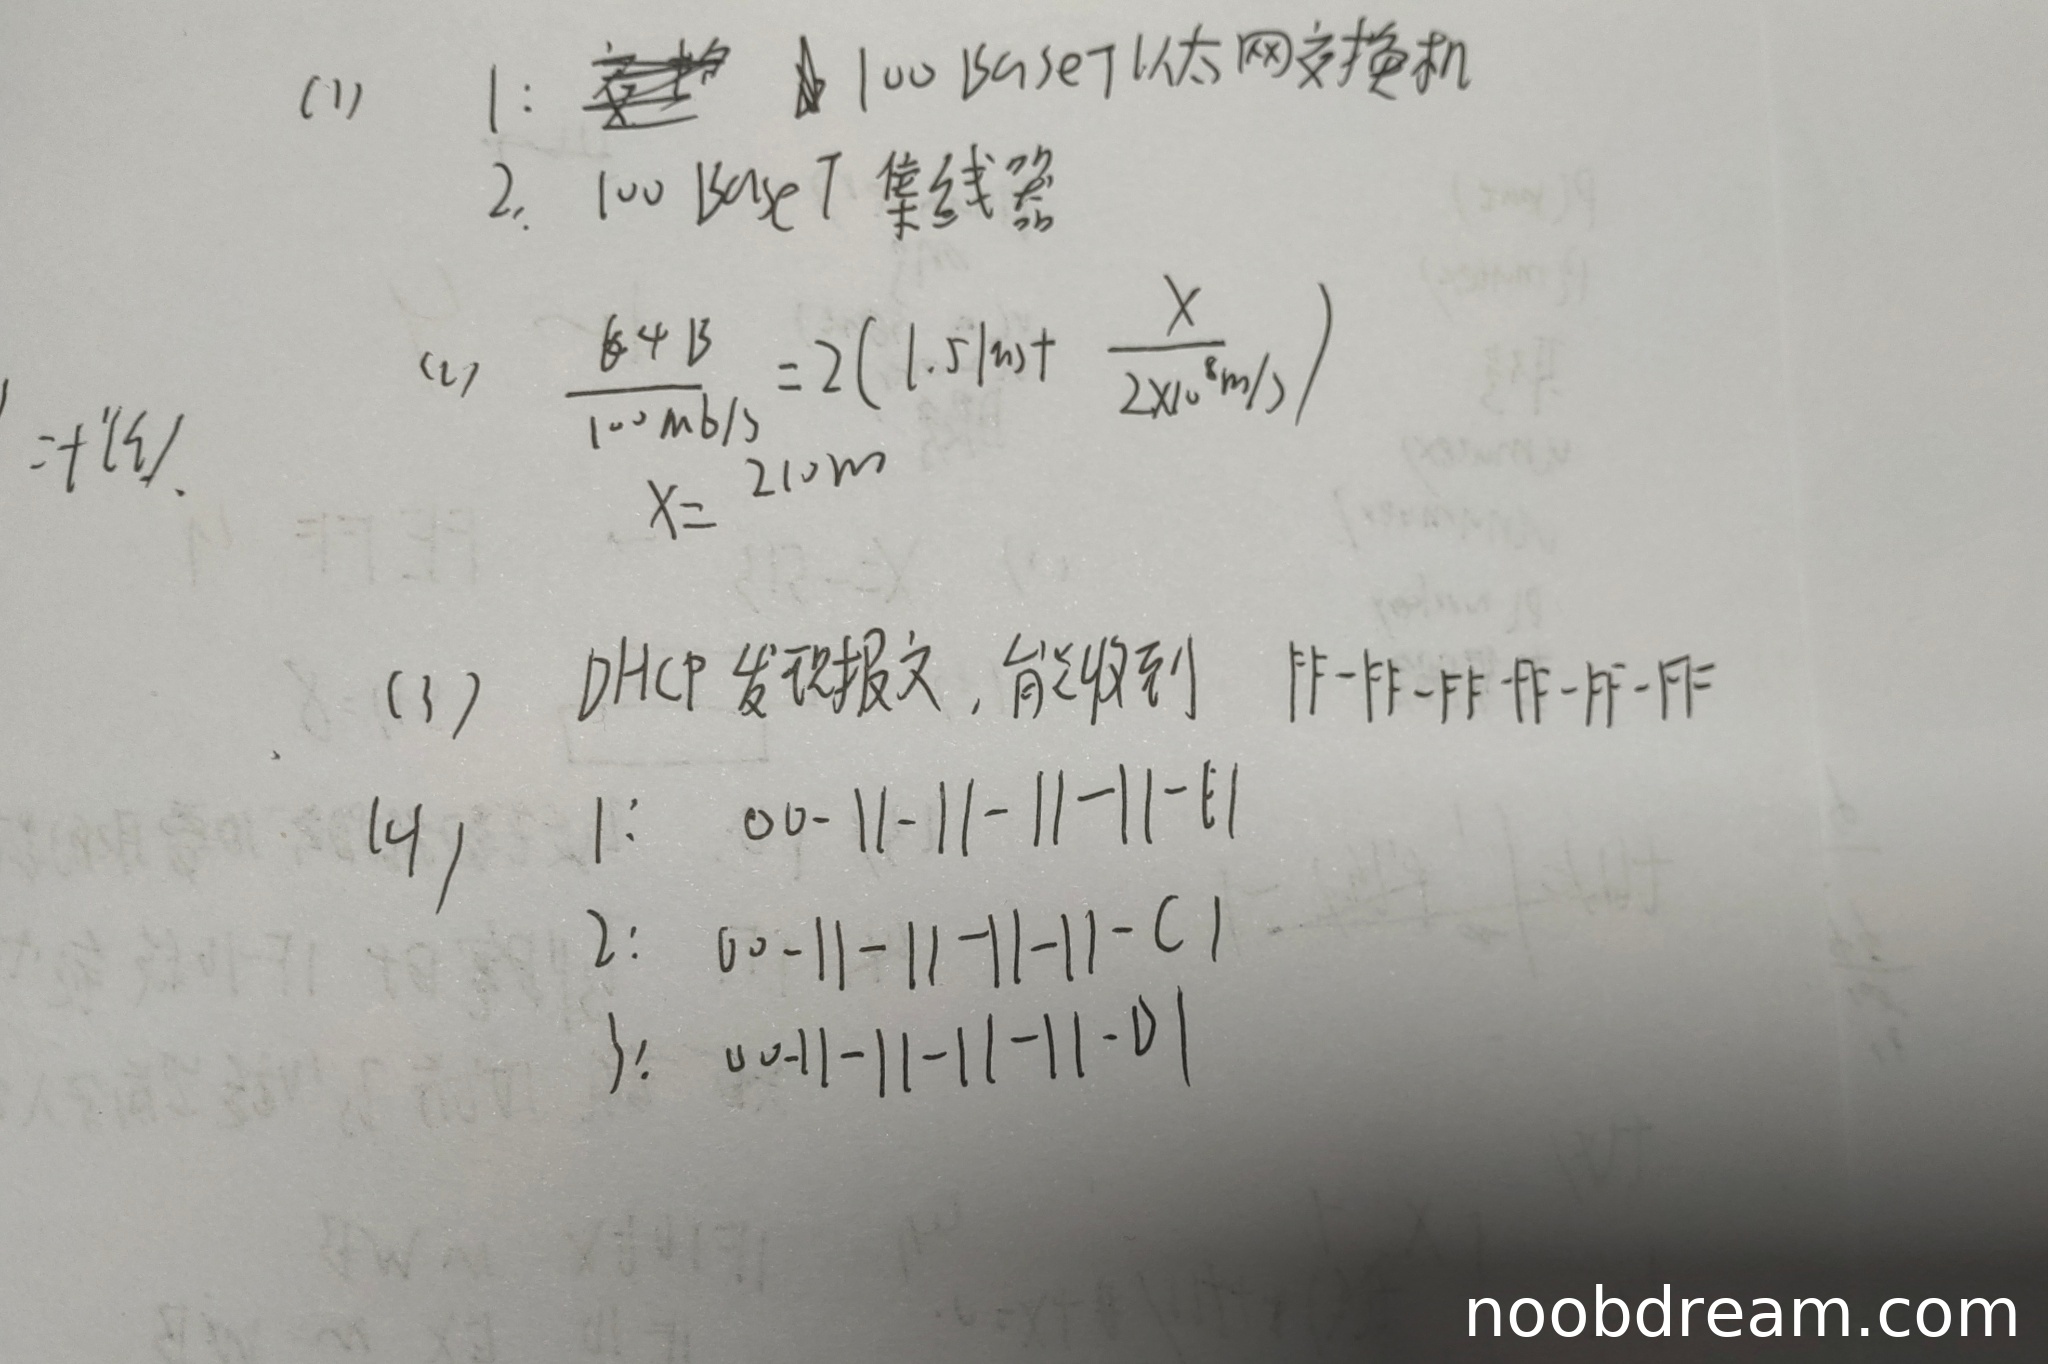 (1) 1: 100 BaseT以太网交换机
2. 100 BaseT 集线器
(2) 64B / 100Mb/s = 2(1.51us + X / 2×10⁸m/s)
X= 210m
(3) DHCP 发现报文,能收到 FF-FF-FF-FF-FF-FF
(4) 1: 00-11-11-11-11-E1
2: 00-11-11-11-11-C1
3: 00-11-11-11-11-D1
noobdream.com